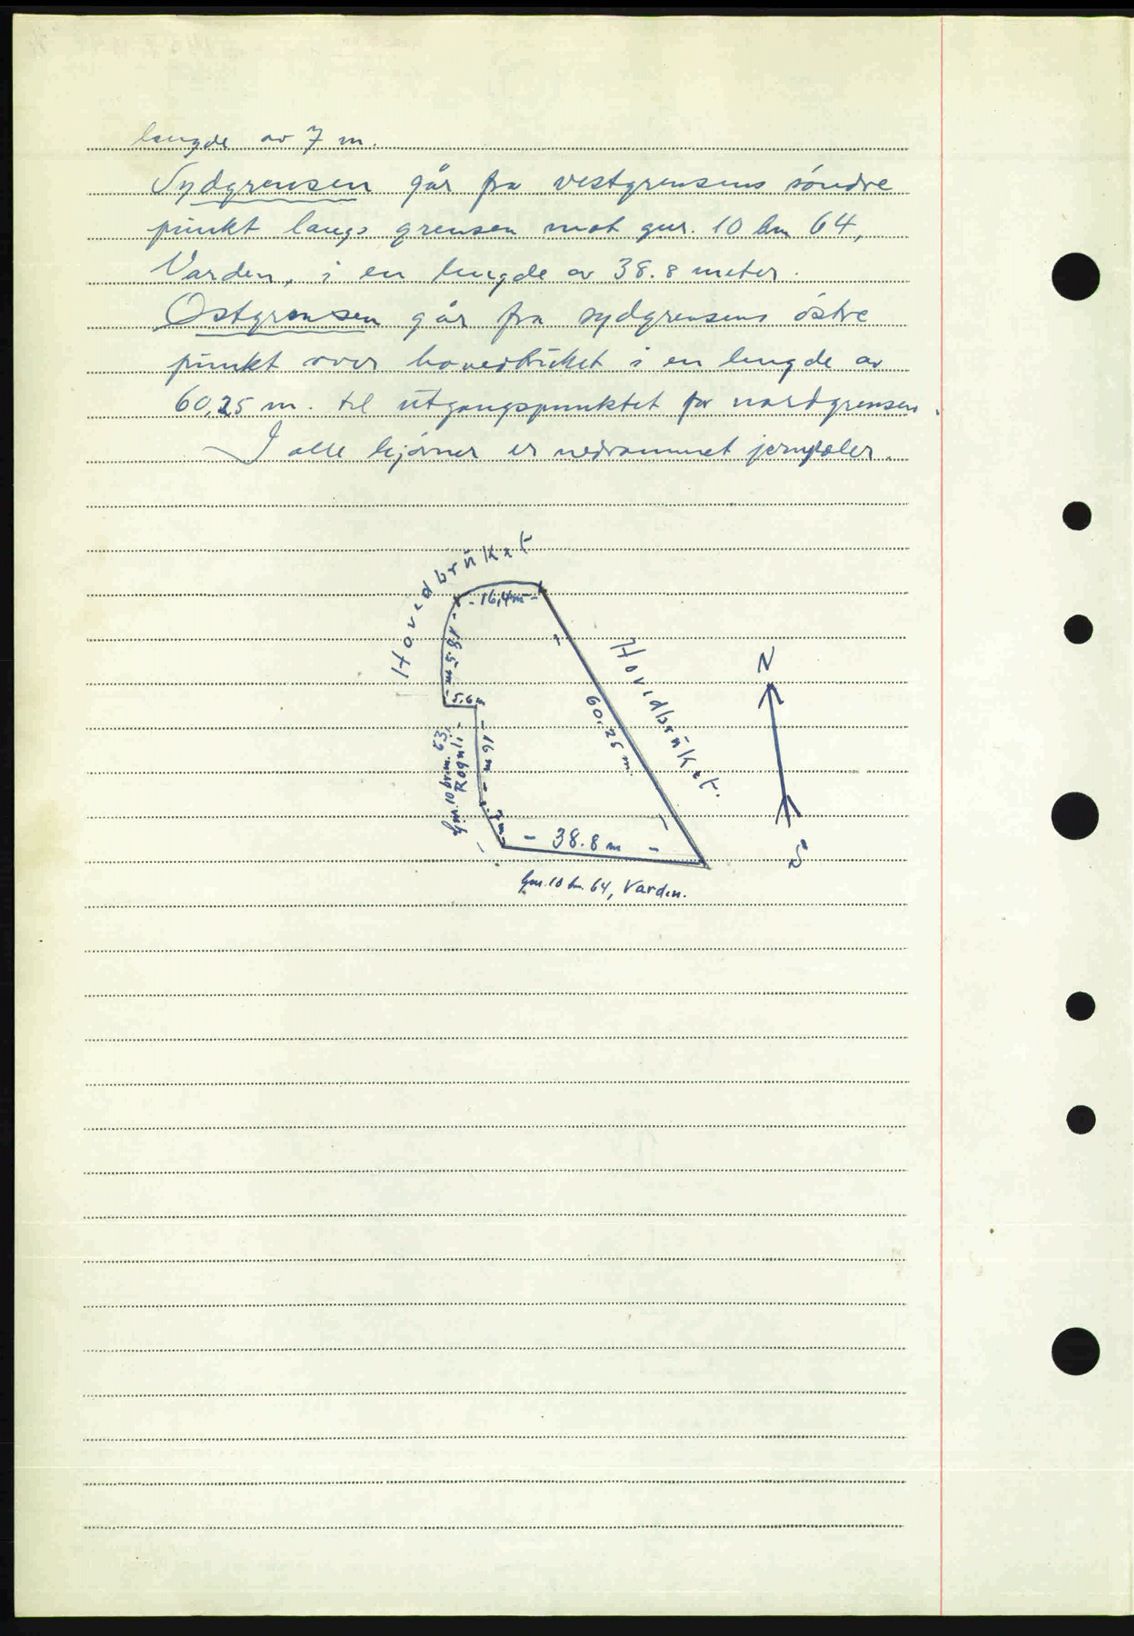 lengde av 7 m.
Sydgrensen går fra vestgrensens söndre
punkt langs grensen mot gnr. 10 bnr 64,
Varden, i en lengde av 38.8 meter.
Östgrensen går fra sydgrensens östre
punkt over hovedbrüket i en lengde av
60,25 m. til ütgangspunktet for nordgrensen.
I alle hjörner er nedrammet jernpæler.
Hovedbrüket
- 16,4m -
- 18.5 m -
5.6m
Gnr. 10 bnr. 63,
Rognli
- 16 m -
7 m
60.25 m.
Hovedbrüket.
N
S
- 38.8 m -
Gnr. 10 bnr. 64, Varden.